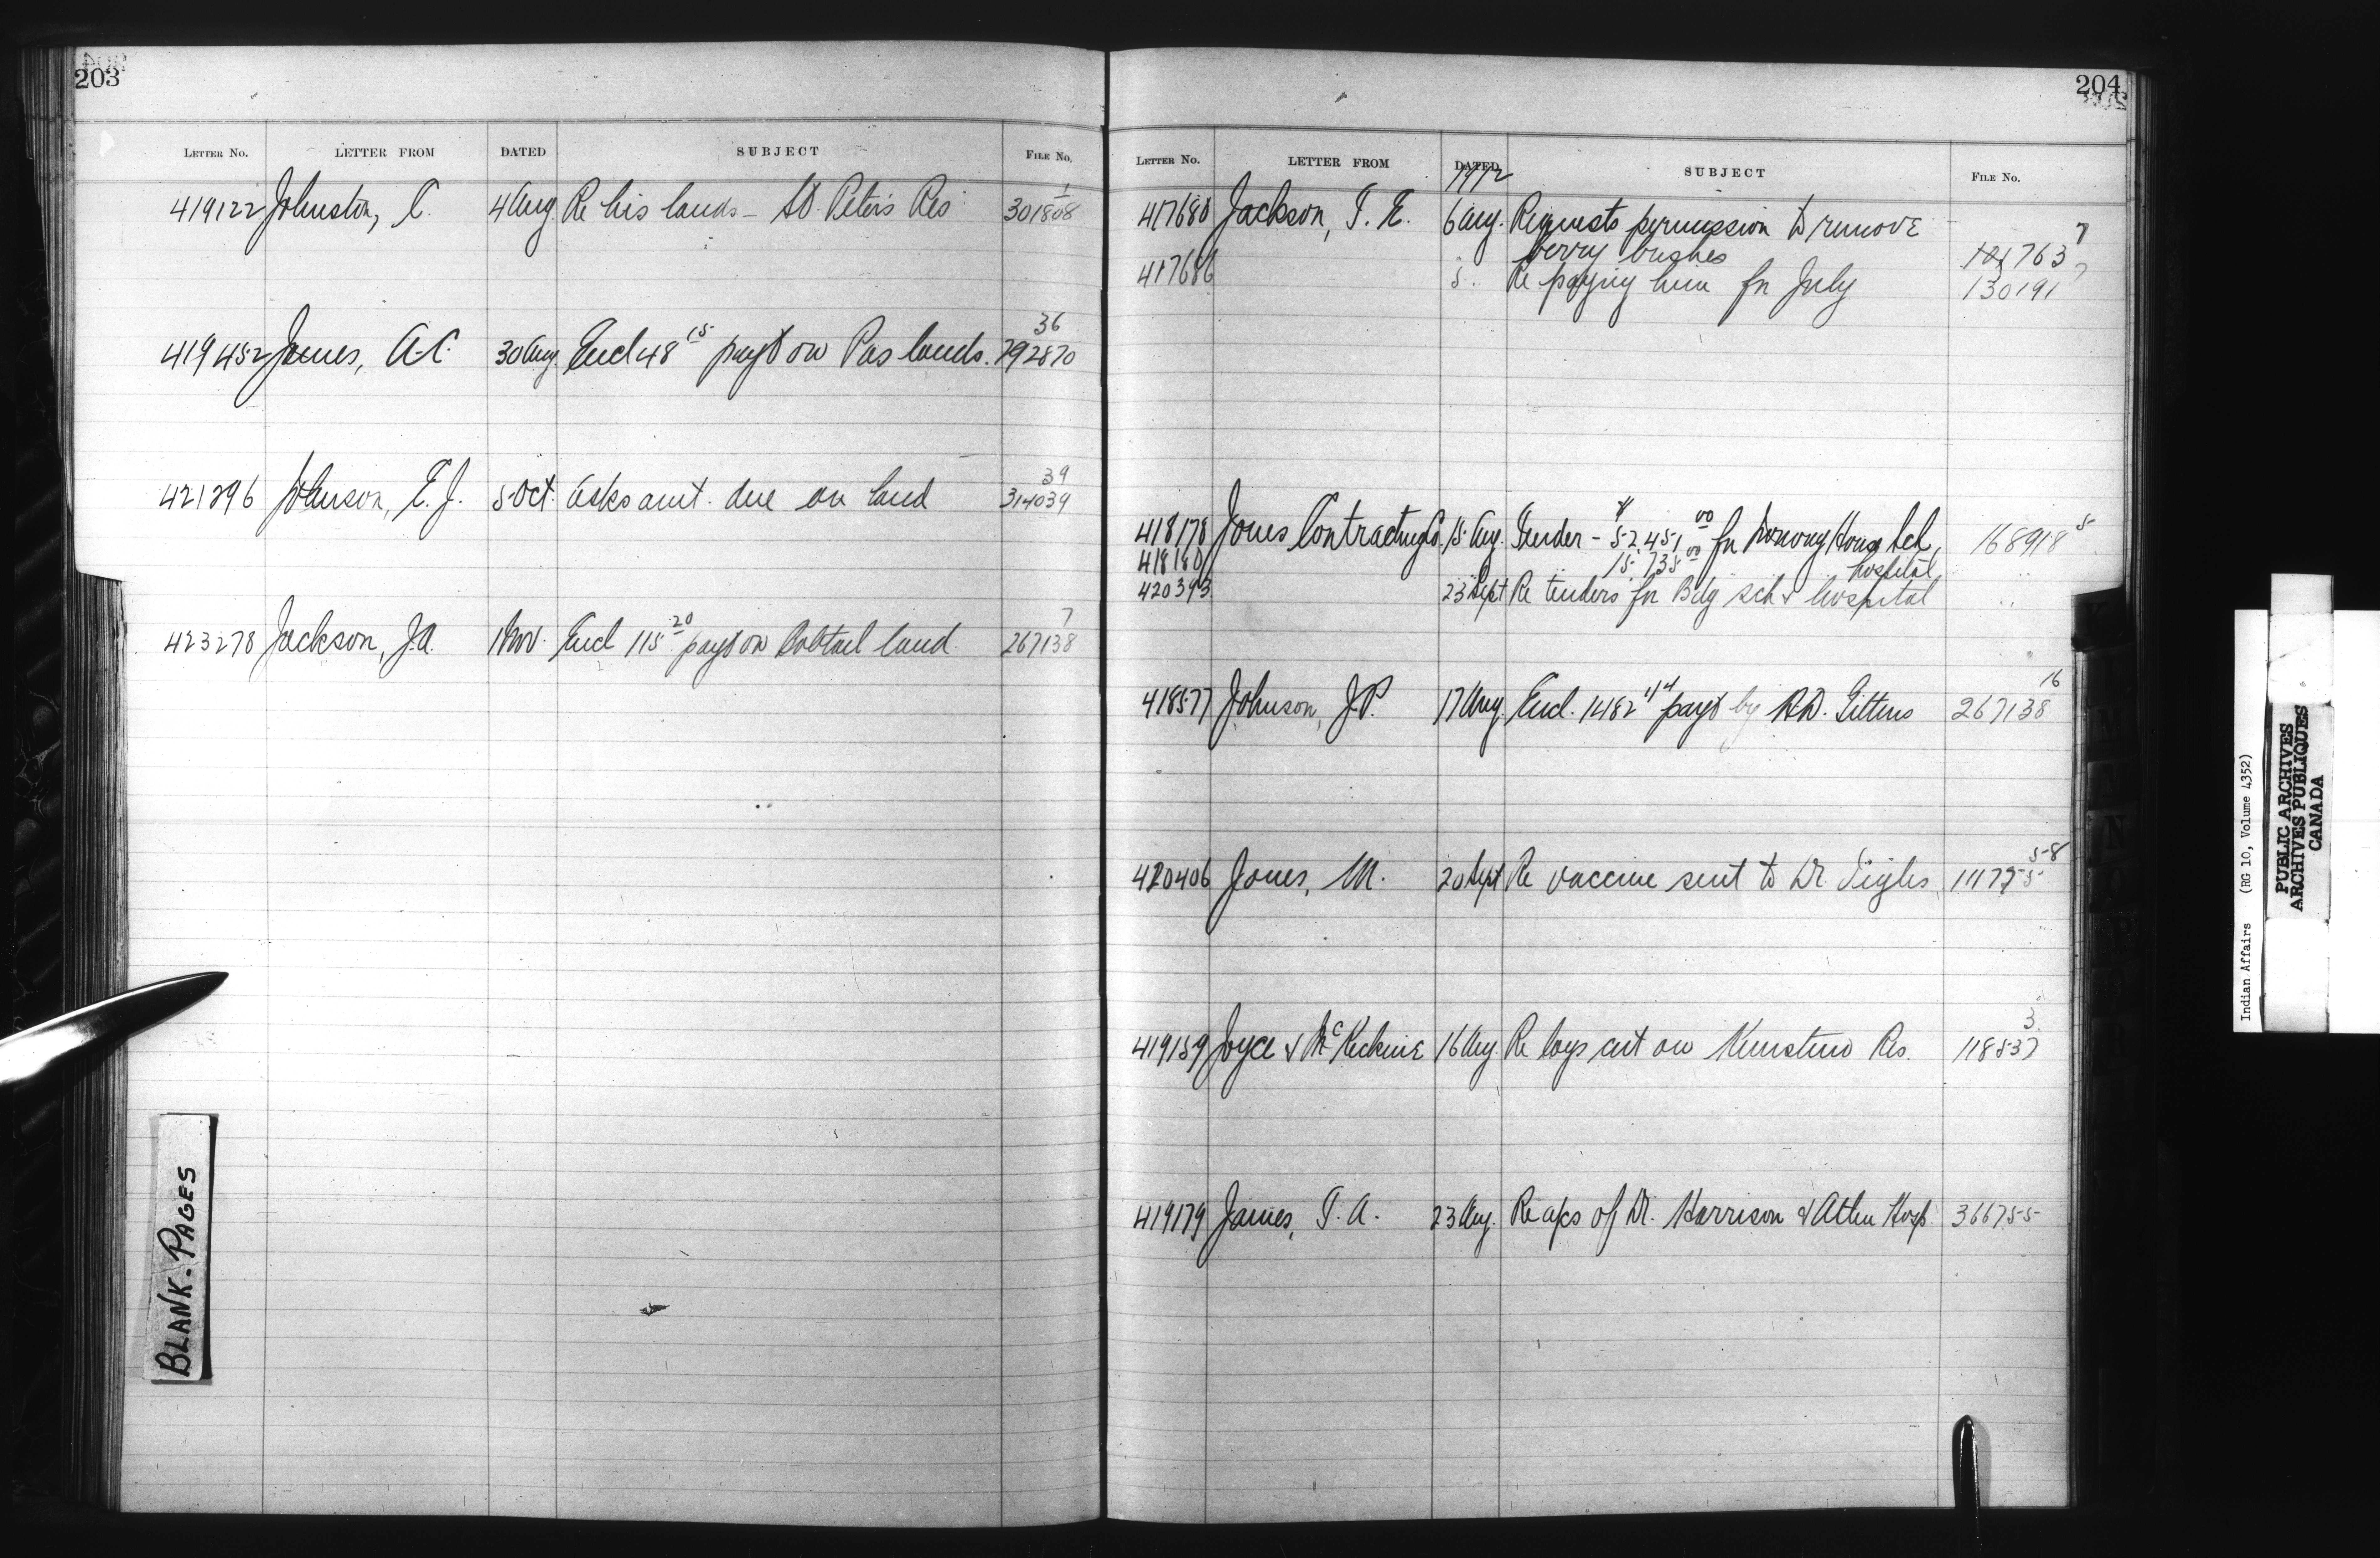 203
LETTER NO. LETTER FROM DATED SUBJECT FILE NO.
419122 Johnston, C. 4 Aug Re his lands - St. Peter's Res 301808 1
419452 James, A.C. 30 Aug. Encl 48 15 payt on Pas lands. 792870 36
421296 Johnson, E.J. 5 Oct. Asks amt. due on land 314039 39
423278 Jackson, J.A. 1 Nov. Encl 115 20 payt on Bobtail land. 267138 7
BLANK-PAGES
204
LETTER NO. LETTER FROM DATED SUBJECT FILE NO.
1912
417680 Jackson, T. E. 6 Aug. Requests permission to remove
berry bushes 121763 7
417686 5 .. Re paying him for July 130191 7
418178 Jones Contracting Co. 15 Aug. Tender - $ 52,451 00 for Norway House Sch, 168918 5
418180 15,735 00 hospital ..
420393 23 Sept Re tenders for Bdg sch & hospital ..
418577 Johnson, J.P. 17 Aug. Encl. 1482 44 payt by R.D. Gittens 267138 16
420406 Jones, M. 20 Sept Re vaccine sent to Dr. 58
419159 Joyce & McKechnie 16 Aug. Re logs cut on Res. 118537 3
419179 James, T. A. 23 Aug. Re a/cs of Dr. Harrison & Atlin Hosp. 366755
Indian Affairs (RG 10, Volume 4352)
PUBLIC ARCHIVES
ARCHIVES PUBLIQUES
CANADA